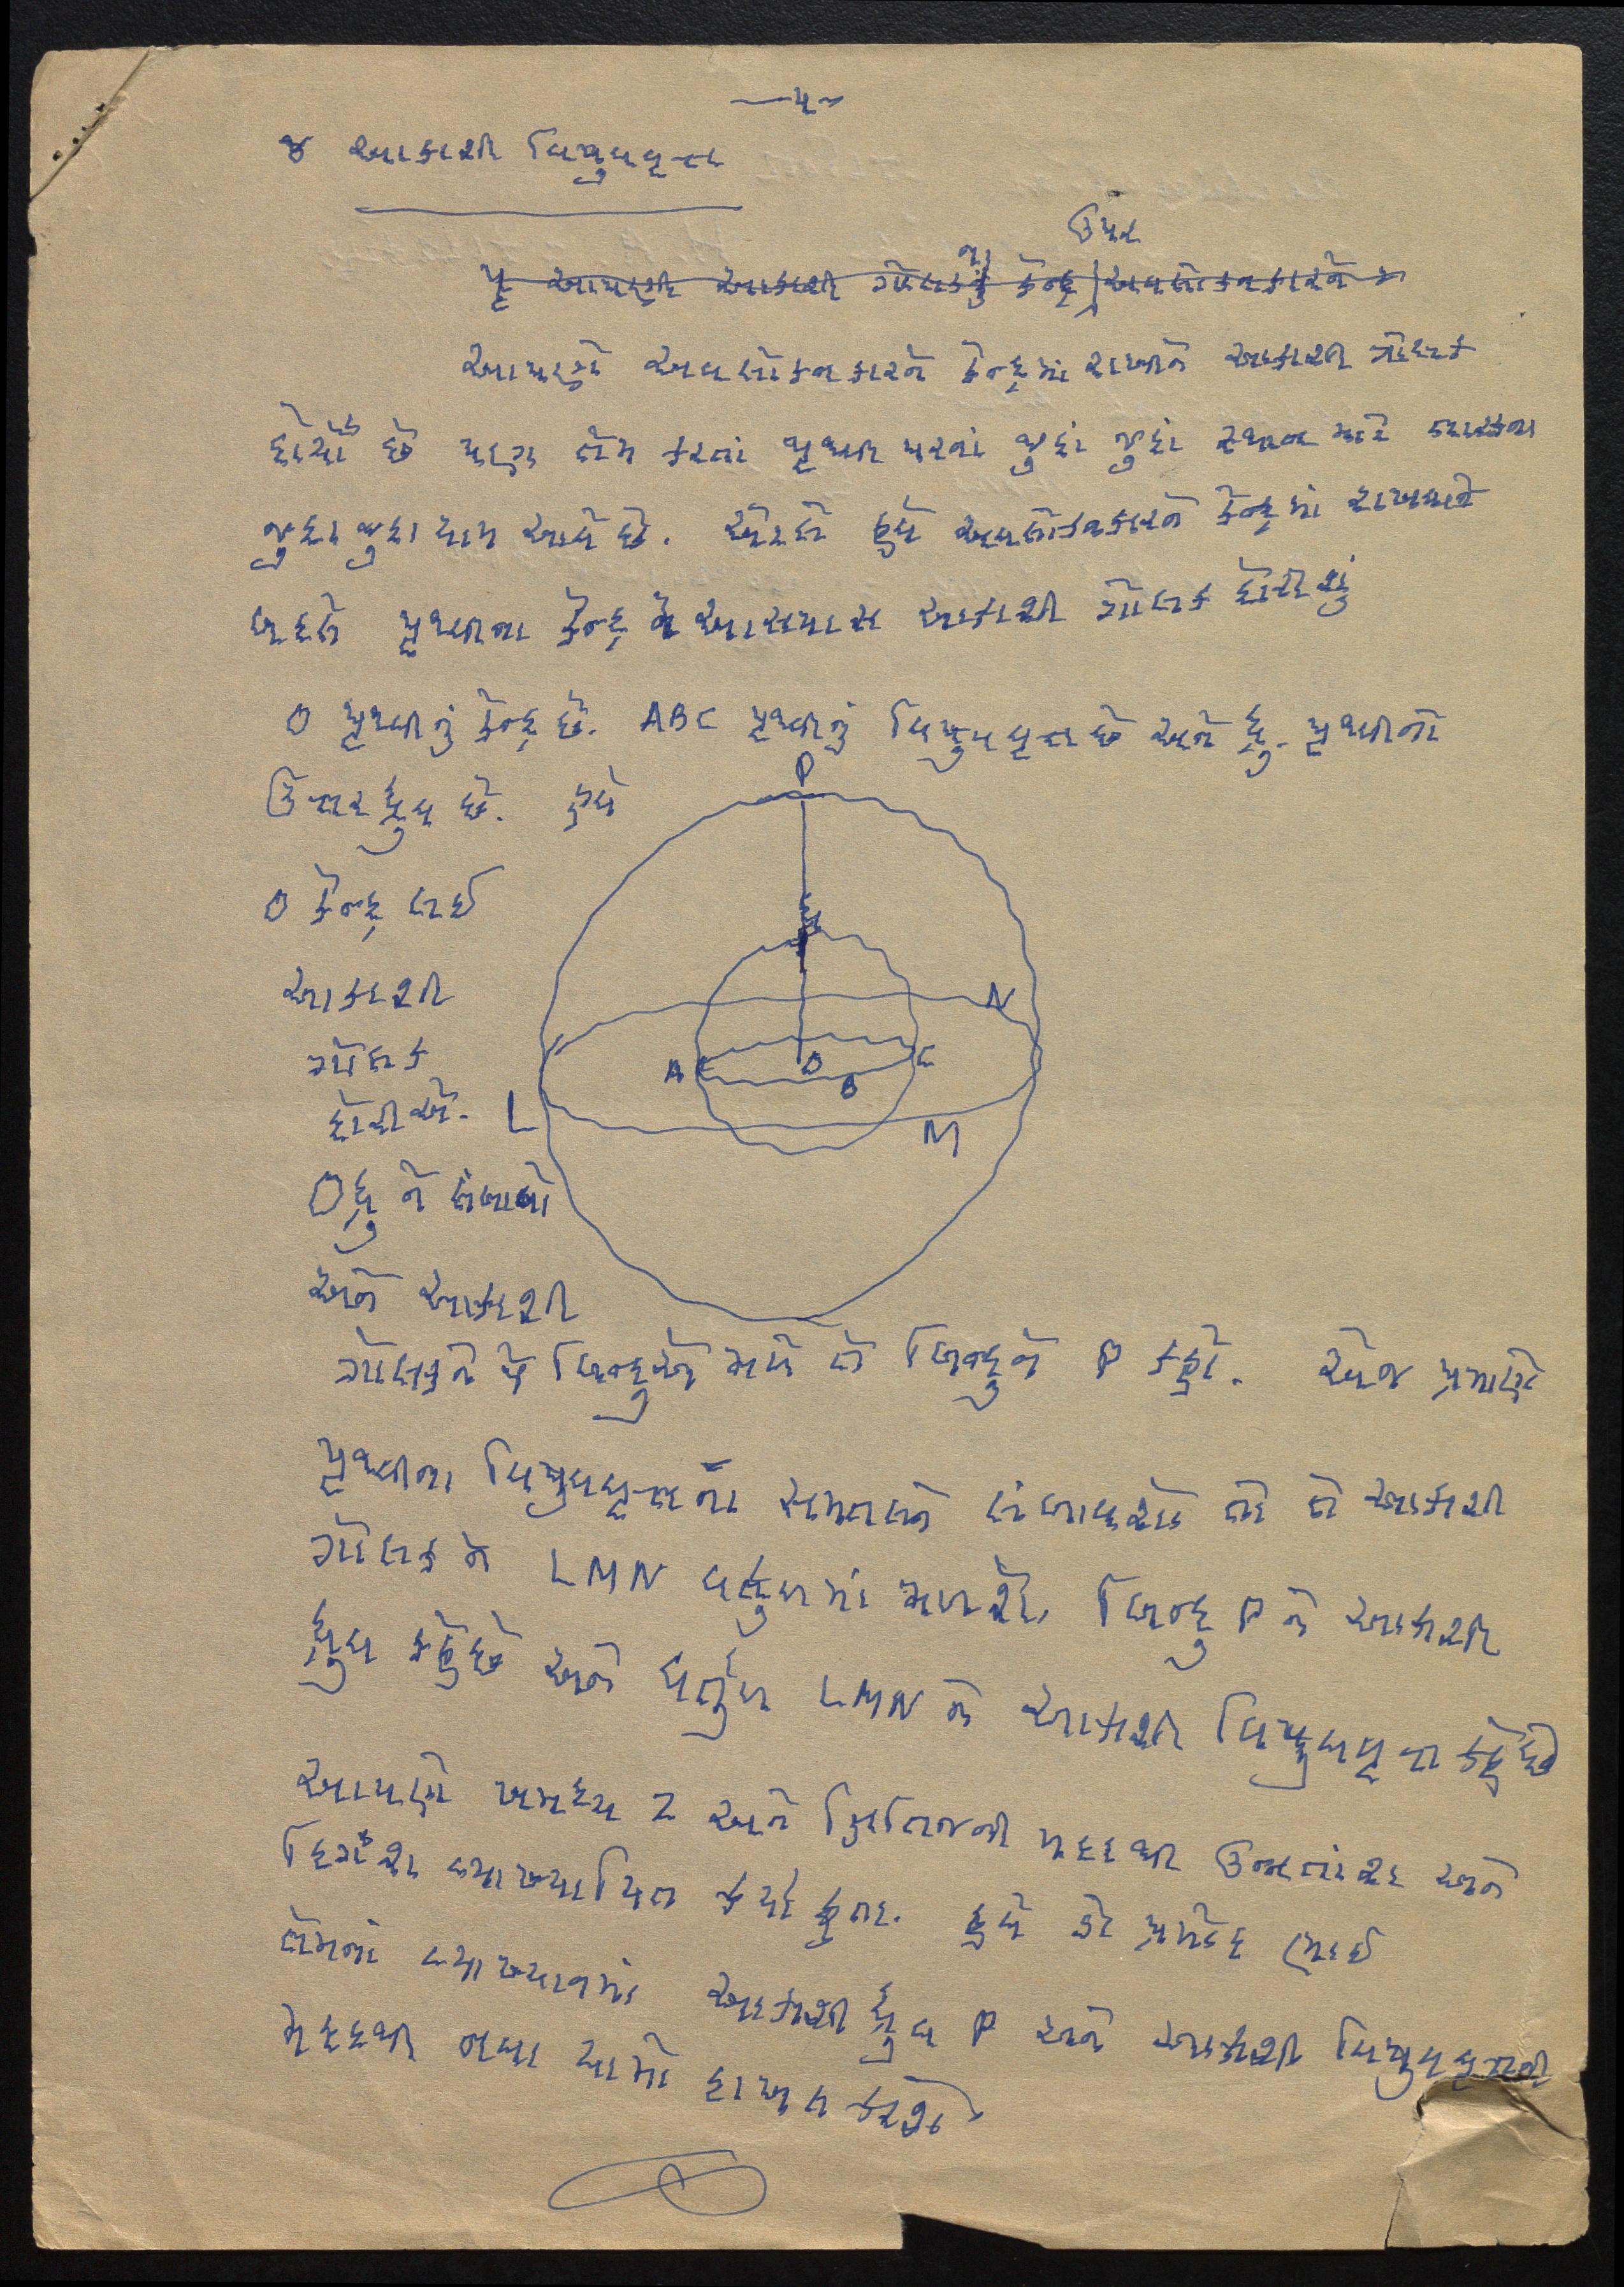 —૫—
૪ આકાશી વિષુવવૃત્ત
ઉપર
આપણે આકાશી ગોલકનું કેન્દ્ર અવલોકનકારને
આપણે અવલોકનકારને કેન્દ્રમાં રાખીને આકાશી ગોલક
દોર્યો છે પણ તેમ કરતાં પૃથ્વી પરનાં જુદાં જુદાં સ્થાન માટે
જુદા જુદા યામ આવે છે. એટલે હવે અવલોકનકારને કેન્દ્રમાં રાખવાને
બદલે પૃથ્વીના કેન્દ્ર ને આસપાસ આકાશી ગોલક દોરીશું
O પૃથ્વીનું કેન્દ્ર છે. ABC પૃથ્વીનું વિષુવવૃત્ત છે અને ધ્રુ. પૃથ્વીનો
ઉત્તર ધ્રુવ છે. હવે
P
O કેન્દ્ર લઈ
આકાશી
ગોલક
દોરીએ.
N
A O C
B
L M
Oધ્રુ ને લંબાવો
અને આકાશી
ગોલકને જે બિન્દુએ મળે તે બિન્દુને P કહો. એજ પ્રમાણે
પૃથ્વીના વિષુવવૃત્તના સમતલને લંબાવશો તો તે આકાશી
ગોલક ને LMN વર્તુળમાં મળશે. બિન્દુ P ને આકાશી
ધ્રુવ કહે છે અને વર્તુળ LMN ને આકાશી વિષુવવૃત્ત કહે છે
આપણે ખમધ્ય Z અને ક્ષિતિજની મદદથી ઉન્નતાંશ અને
દિગંશ વ્યાખ્યાયિત કર્યા હતા. હવે તે પ્રમાણે જ
તેમનાં વ્યાખ્યાનમાં આકાશી ધ્રુવ P અને આકાશી વિષુવવૃત્તની
મદદથી નવા યામો દાખલ કરીશું